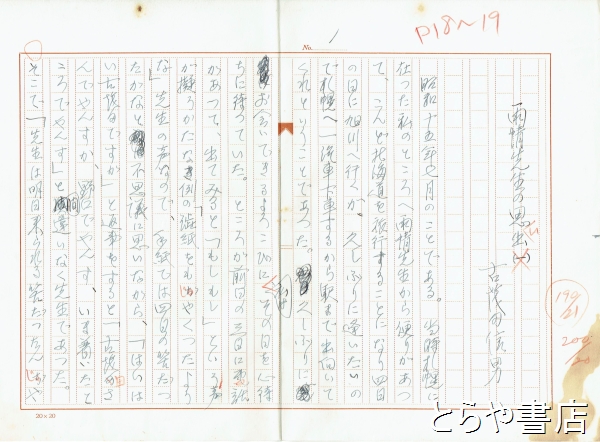 P18〜19
No. 1
雨情先生の思い出(一)
古茂田信男
199/21
200/20
昭和十五年七月のことである。当時札幌に
在った私のところへ雨情先生から便りがあっ
て、こんど北海道を旅行することになり四日
の日に旭川へ行くが、久しぶりに逢いたいの
で札幌へ一汽車下車するから駅まで出向いて
くれということであった。久しぶりに
お会いできるよろこびに、その日を心待
ちに待っていた。ところが前日の三日に電話
があって、出てみると「もしもし」という声
が擬ろうかたなき例の渋紙をもじゃくつたよう
な 先生の声なので、手紙では四日の筈だっ
たがなと不思議に思いながら、「はいはい
い古茂田ですが」と返事をすると「古茂田さ
んでやんすか、野口でやんす、いま着いたと
ころでやんす」と間違いなく先生であった。
そこで「先生は明日来られる筈だったんじゃや
20×20
とらや書店